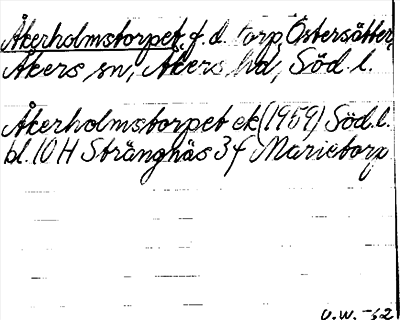 Åkerholmstorpet, f.d. torp, Östersätter,
Åkers sn, Åkers hd, Söd. l.
Åkerholmstorpet ek (1959) Söd. l.
bl. 10 H Strängnäs 3 f Marietorp
U.W. -62